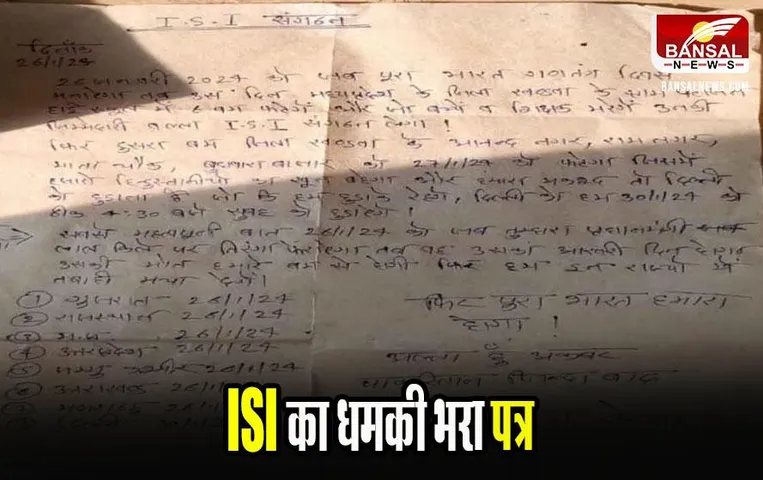 I.S.I संगठन
BANSAL
NEWS
BANSALNEWS.COM
दिनाँक
26/1/24
26 जनवरी 2024 को जब पूरा भारत गणतंत्र दिवस
मनायेगा तब उस दिन मध्यप्रदेश के जिला खण्डवा के
हाई स्कूल में बम फटेंगे और जो बच्चे व शिक्षक मरेंगे उनकी
जिम्मेदारी I.S.I संगठन लेगा!
फिर दुसरा बम जिला खण्डवा के आनन्द नगर, रामनगर,
माता चौक, बुधवारा बाजार को 27/1/24 को फटेगा जिसमें
का खून बहेगा और हमारा मकसद तो दिल्ली
को उड़ाना है जो कि हम उड़ाके रहेंगे, दिल्ली को हम 30/1/24 को
ठीक 4:30 बजे सुबह को उड़ाएंगे!
सबसे महत्वपूर्ण बात 26/1/24 को जब तुम्हारा प्रधानमंत्री
लाल किले पर तिरंगा फहरायेगा तब वह उसका आखरी दिन होगा
उसकी मौत हमारे बम से होगी फिर हम इन राज्यों में
तबाही मचा देंगे!
① गुजरात 26/1/24
② राजस्थान 26/1/24
③ म.प्र. 26/1/24
④ उत्तरप्रदेश 26/1/24
⑤ जम्मू कश्मीर 26/1/24
⑥ उत्तराखण्ड 26/1/24
फिर पुरा भारत हमारा
होगा!
अल्ला हु अकबर
पाकिस्तान जिन्दाबाद
ISI का धमकी भरा पत्र